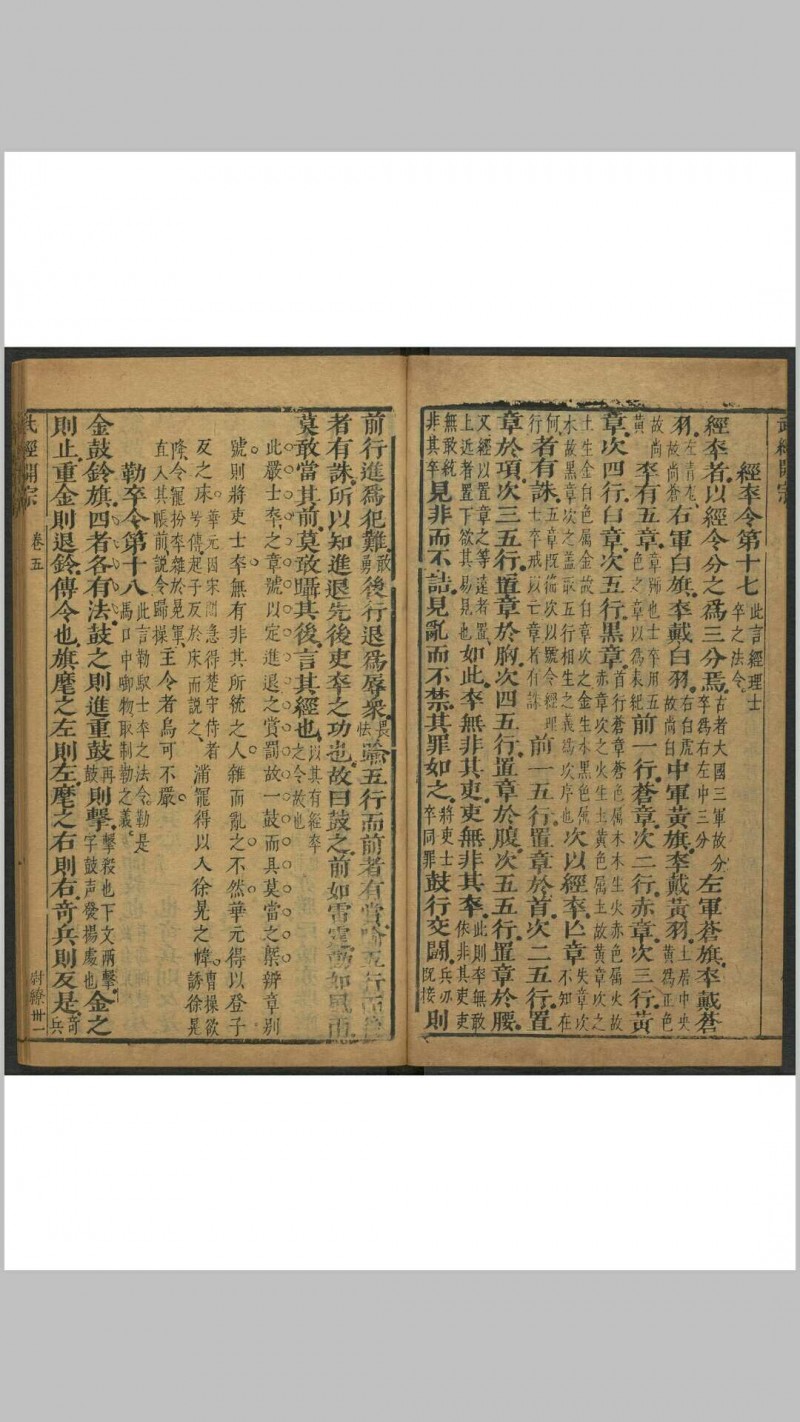 武經開宗
經卒令第十七 此言經理士卒之法令
經卒者以經令分之爲三分焉 古者大國三軍故分卒爲右左中三分 左軍蒼旗卒戴蒼
羽 左青龙故尚蒼 右軍白旗卒戴白羽 右白虎故尚白 中軍黃旗卒戴黃羽 土居中央黃爲正色
故尚黃 卒有五章 章飾也士卒用五色之章以爲表 前一行蒼章次二行赤章次三行黃
章次四行白章次五行黑章 首行蒼章蒼色属木木生火赤色属火故赤章次之火生土黃色属土故黃章次之
土生金白色属金故白章次之金生水黑色属水故黑章次之蓋取五行相生之義爲次序也 次以經卒亡章 失章次不知在
何行 者有誅 五章既偹次以號令經理士卒戒以亡章者有誅 前一五行置章於首次二五行置
章於項次三五行置章於胸次四五行置章於腹次五五行置章於腰
又經以置章之等達者置上近者置下欲其易見也 如此卒無非其吏吏無非其卒 此則卒無敢依非其吏吏
無敢統非其卒 見非而不詰見亂而不禁其罪如之 將吏士卒同罪 鼓行交鬪 兵刃既接 則
前行進爲犯難 敢勇 後行退爲辱衆 畏怯 踰五行而前者有賞踰五行而後
者有誅所以知進退先後吏卒之功也故曰鼓之前如雷霆動如風雨
莫敢當其前莫敢躡其後言其經也 以其有經卒之令故也
此嚴士卒之章號以定進退之賞罰故一鼓而具莫當之槩辨章别
號則將吏士卒無有非其所統之人雜而亂之不然華元得以登子
反之床 華元因宋圍急得楚守侍者号傳起子反於床而說之 消寵得以人徐晃之幃 曹操欲誘徐晃
降令寵扮卒雜於晃軍直入其帳前説令歸操 主令者烏可不嚴
勒卒令第十八 此言勒馭士卒之法令勒是馬口中啣物取制勒之義
金鼓鈴旗四者各有法鼓之則進重鼓 再鼓 則擊 擊殺也下文兩擊字鼓声發揚處也 金之
則止重金則退鈴傳令也旗麾之左則左麾之右則右竒兵則反是 竒兵
武經開宗 卷五 尉繚 卅一